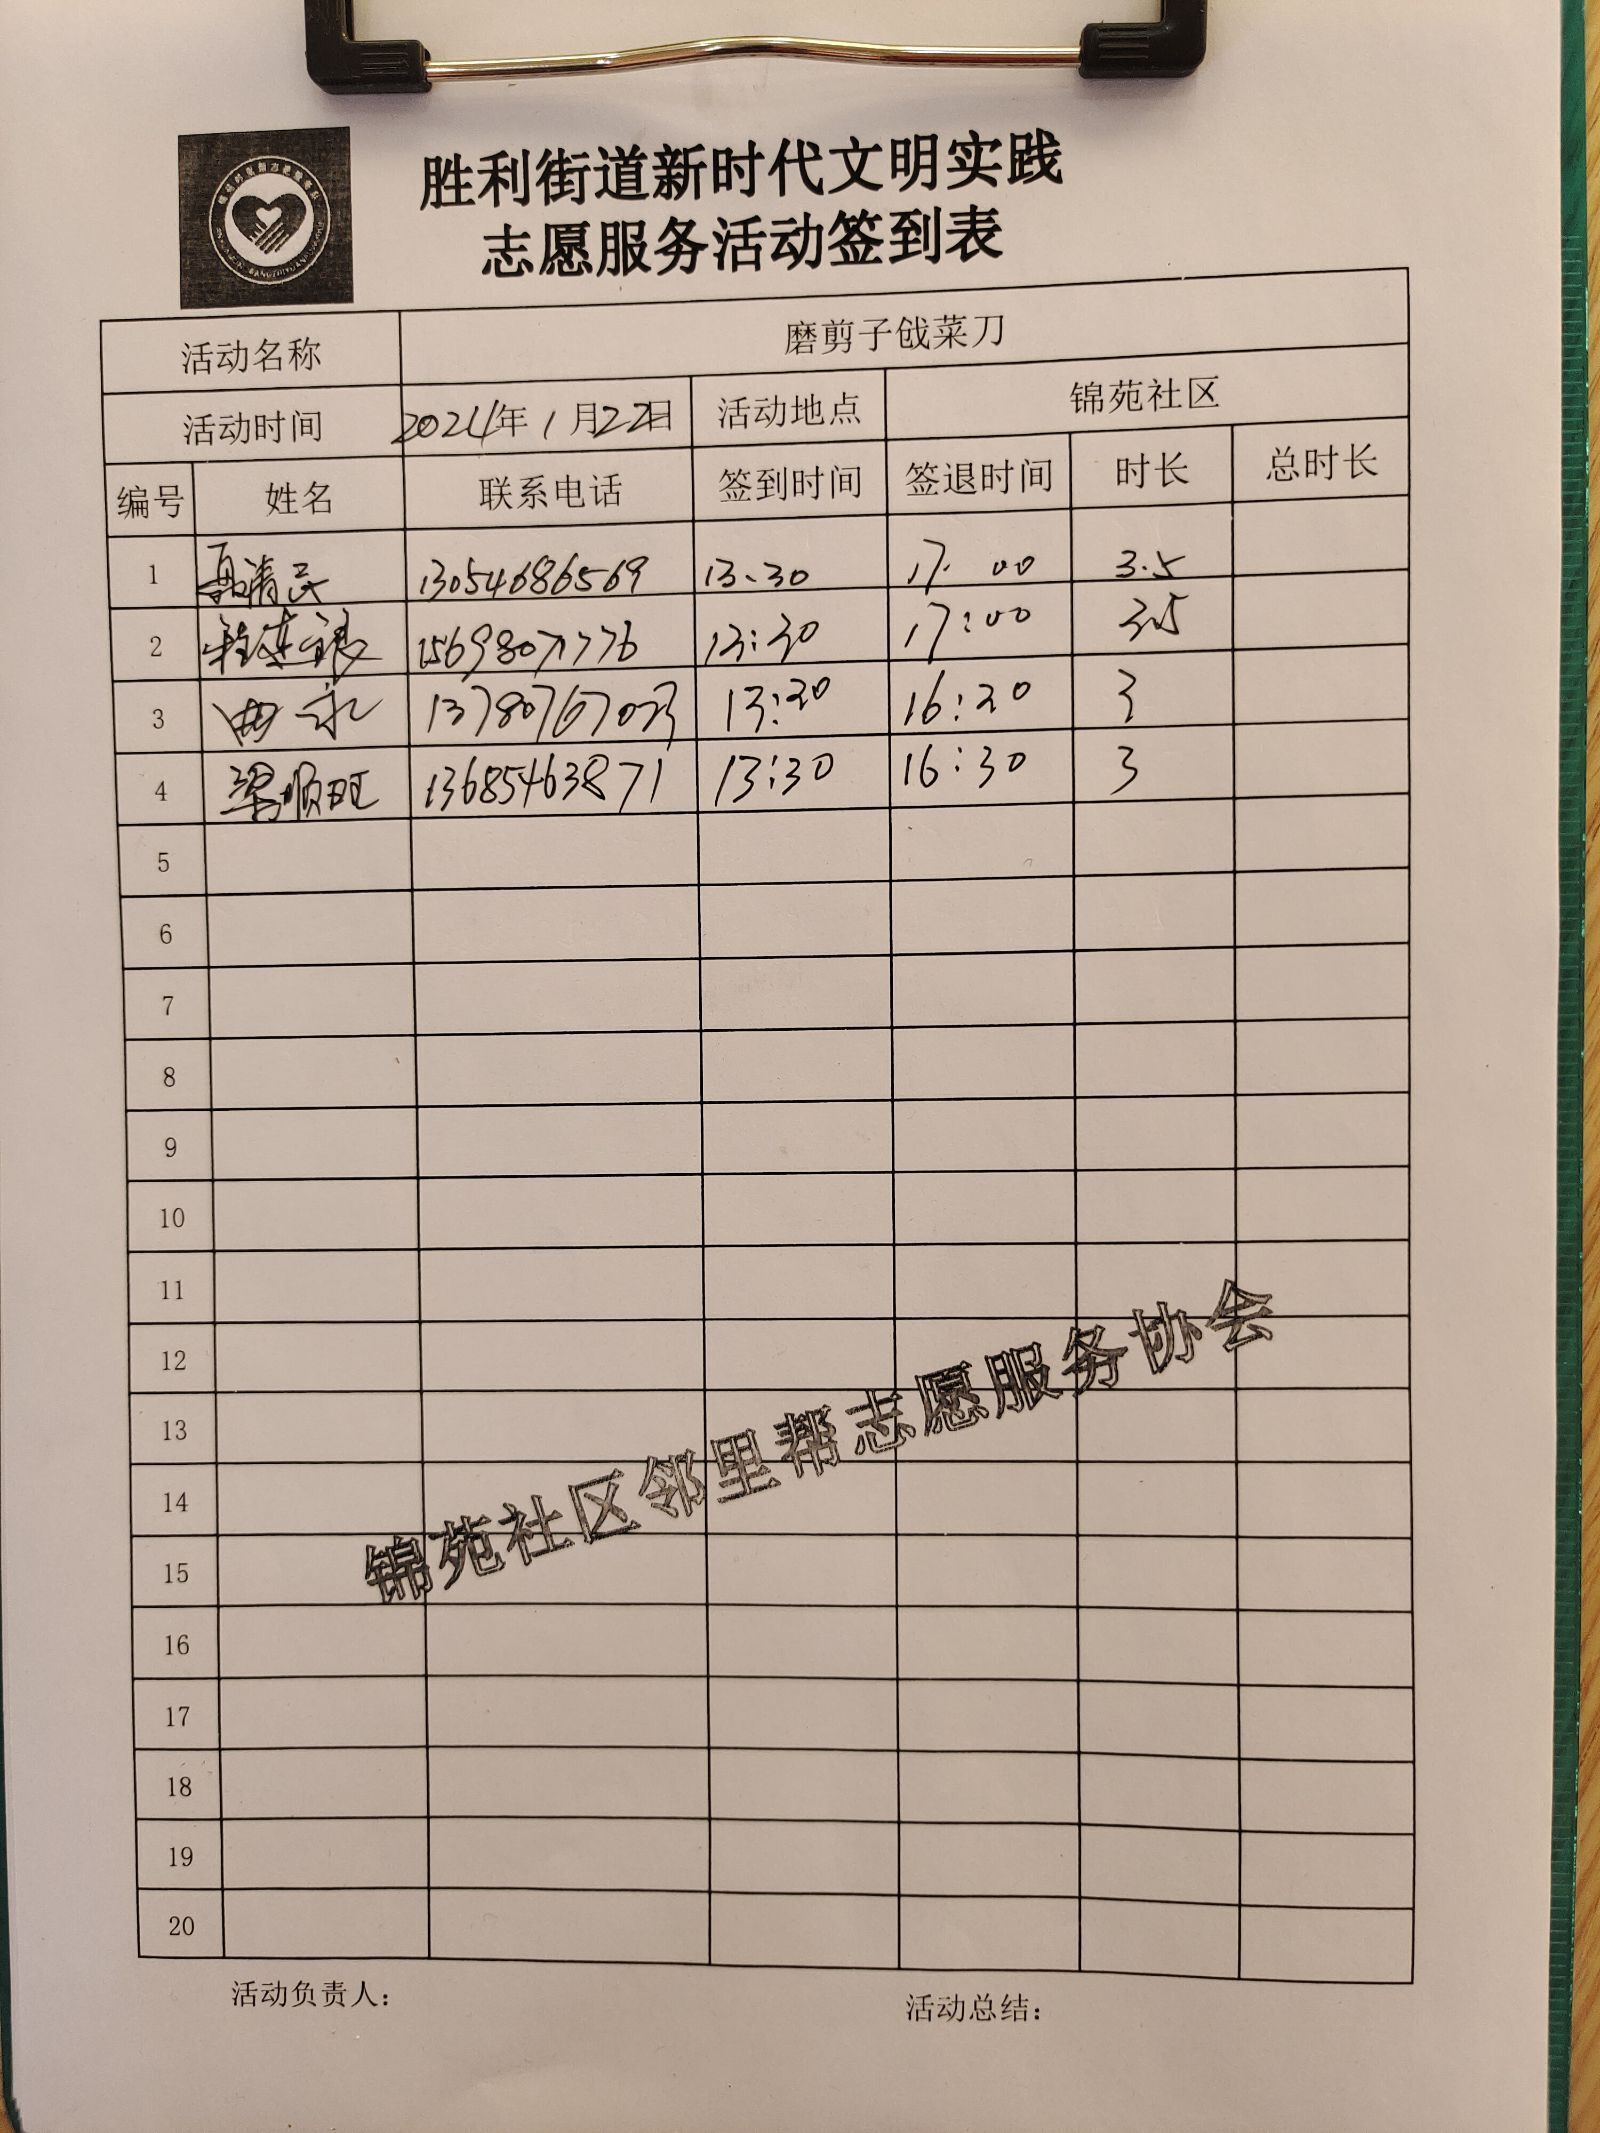 胜利街道新时代文明实践
志愿服务活动签到表
活动名称 磨剪子戗菜刀
活动时间 2024年1月22日 活动地点 锦苑社区
编号 姓名 联系电话 签到时间 签退时间 时长 总时长
1 清民 13054686569 13.30 17.00 3.5
2 15698071776 13:30 17:00 3.5
3 曲永 13:30 16:30 3
4 梁顺旺 13685463871 13:30 16:30 3
5
6
7
8
9
10
11
12
13
14
15
16
17
18
19
20
锦苑社区邻里帮志愿服务协会
活动负责人：
活动总结：